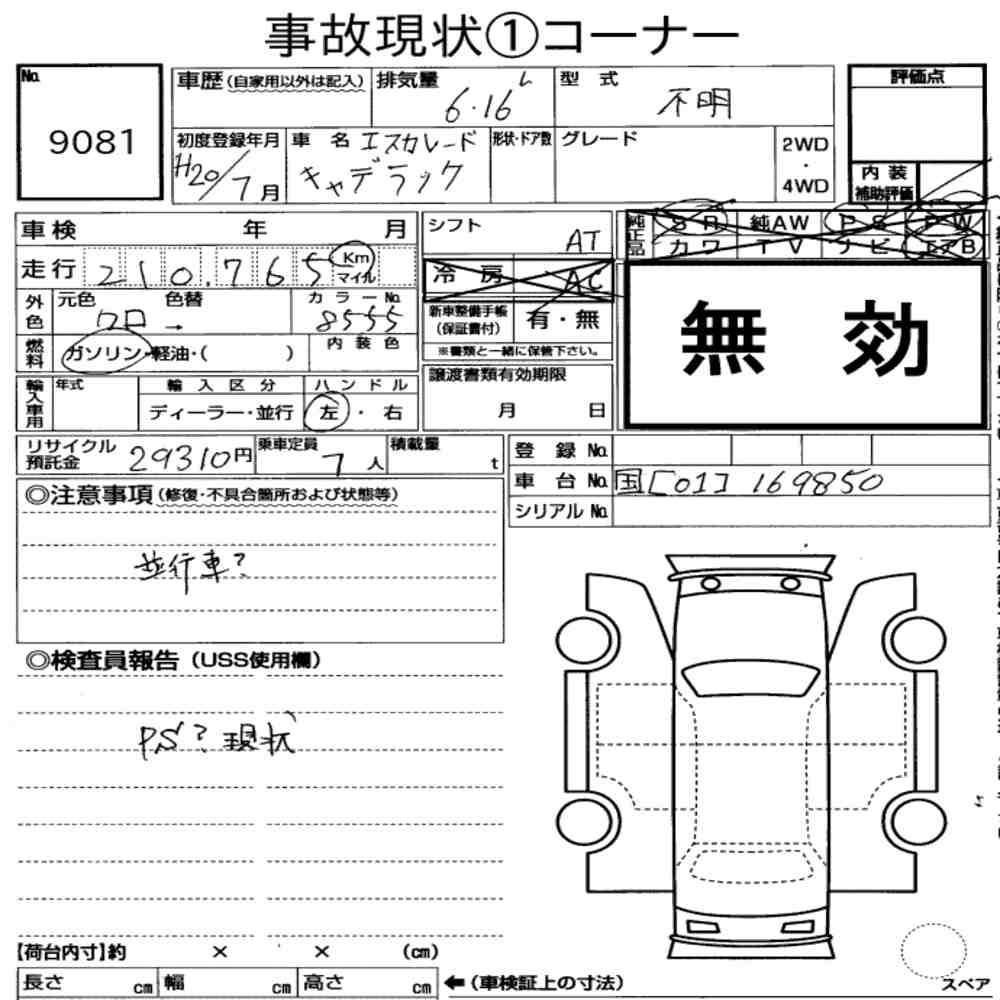 事故現状①コーナー
No.
9081
車歴(自家用以外は記入)
排気量
6.16 L
型 式
不明
評価点
初度登録年月
H20/7月
車 名 エスカレード
キャデラック
形状・ドア数
グレード
2WD
・
4WD
内 装
補助評価
車検 年 月
シフト
AT
純正品
SR 純AW PS PW
カワ TV ナビ エアB
走行 210,765 Km
マイル
冷 房 AC
無 効
外色
元色 色替
クロ →
カラーNo.
8555
新車整備手帳
(保証書付)
有・無
燃料
ガソリン・軽油・( )
内装色
※書類と一緒に保管下さい。
輸入車用
年式
輸入区分
ディーラー・並行
ハンドル
左・右
譲渡書類有効期限
月 日
リサイクル
預託金
29310円
乗車定員
7人
積載量
t
登 録 No.
車 台 No. 国[01]169850
シリアル No.
◎注意事項(修復・不具合箇所および状態等)
並行車?
◎検査員報告(USS使用欄)
P.S? 現状
【荷台内寸】約 × × (cm)
長さ cm 幅 cm 高さ cm
←(車検証上の寸法)
スペア